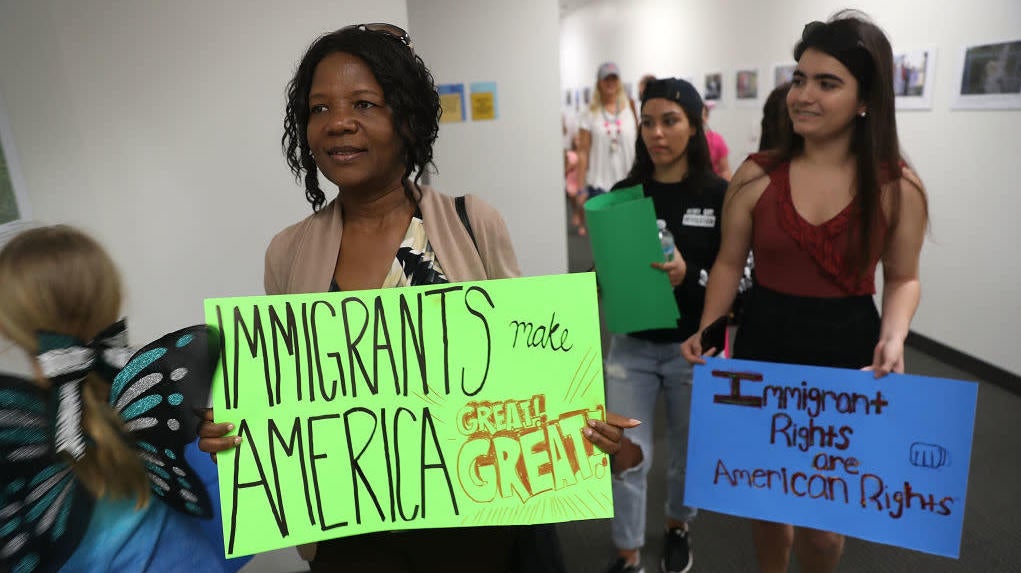 IMMIGRANTS make
AMERICA GREAT!
GREAT!
Immigrant
Rights
are
American Rights